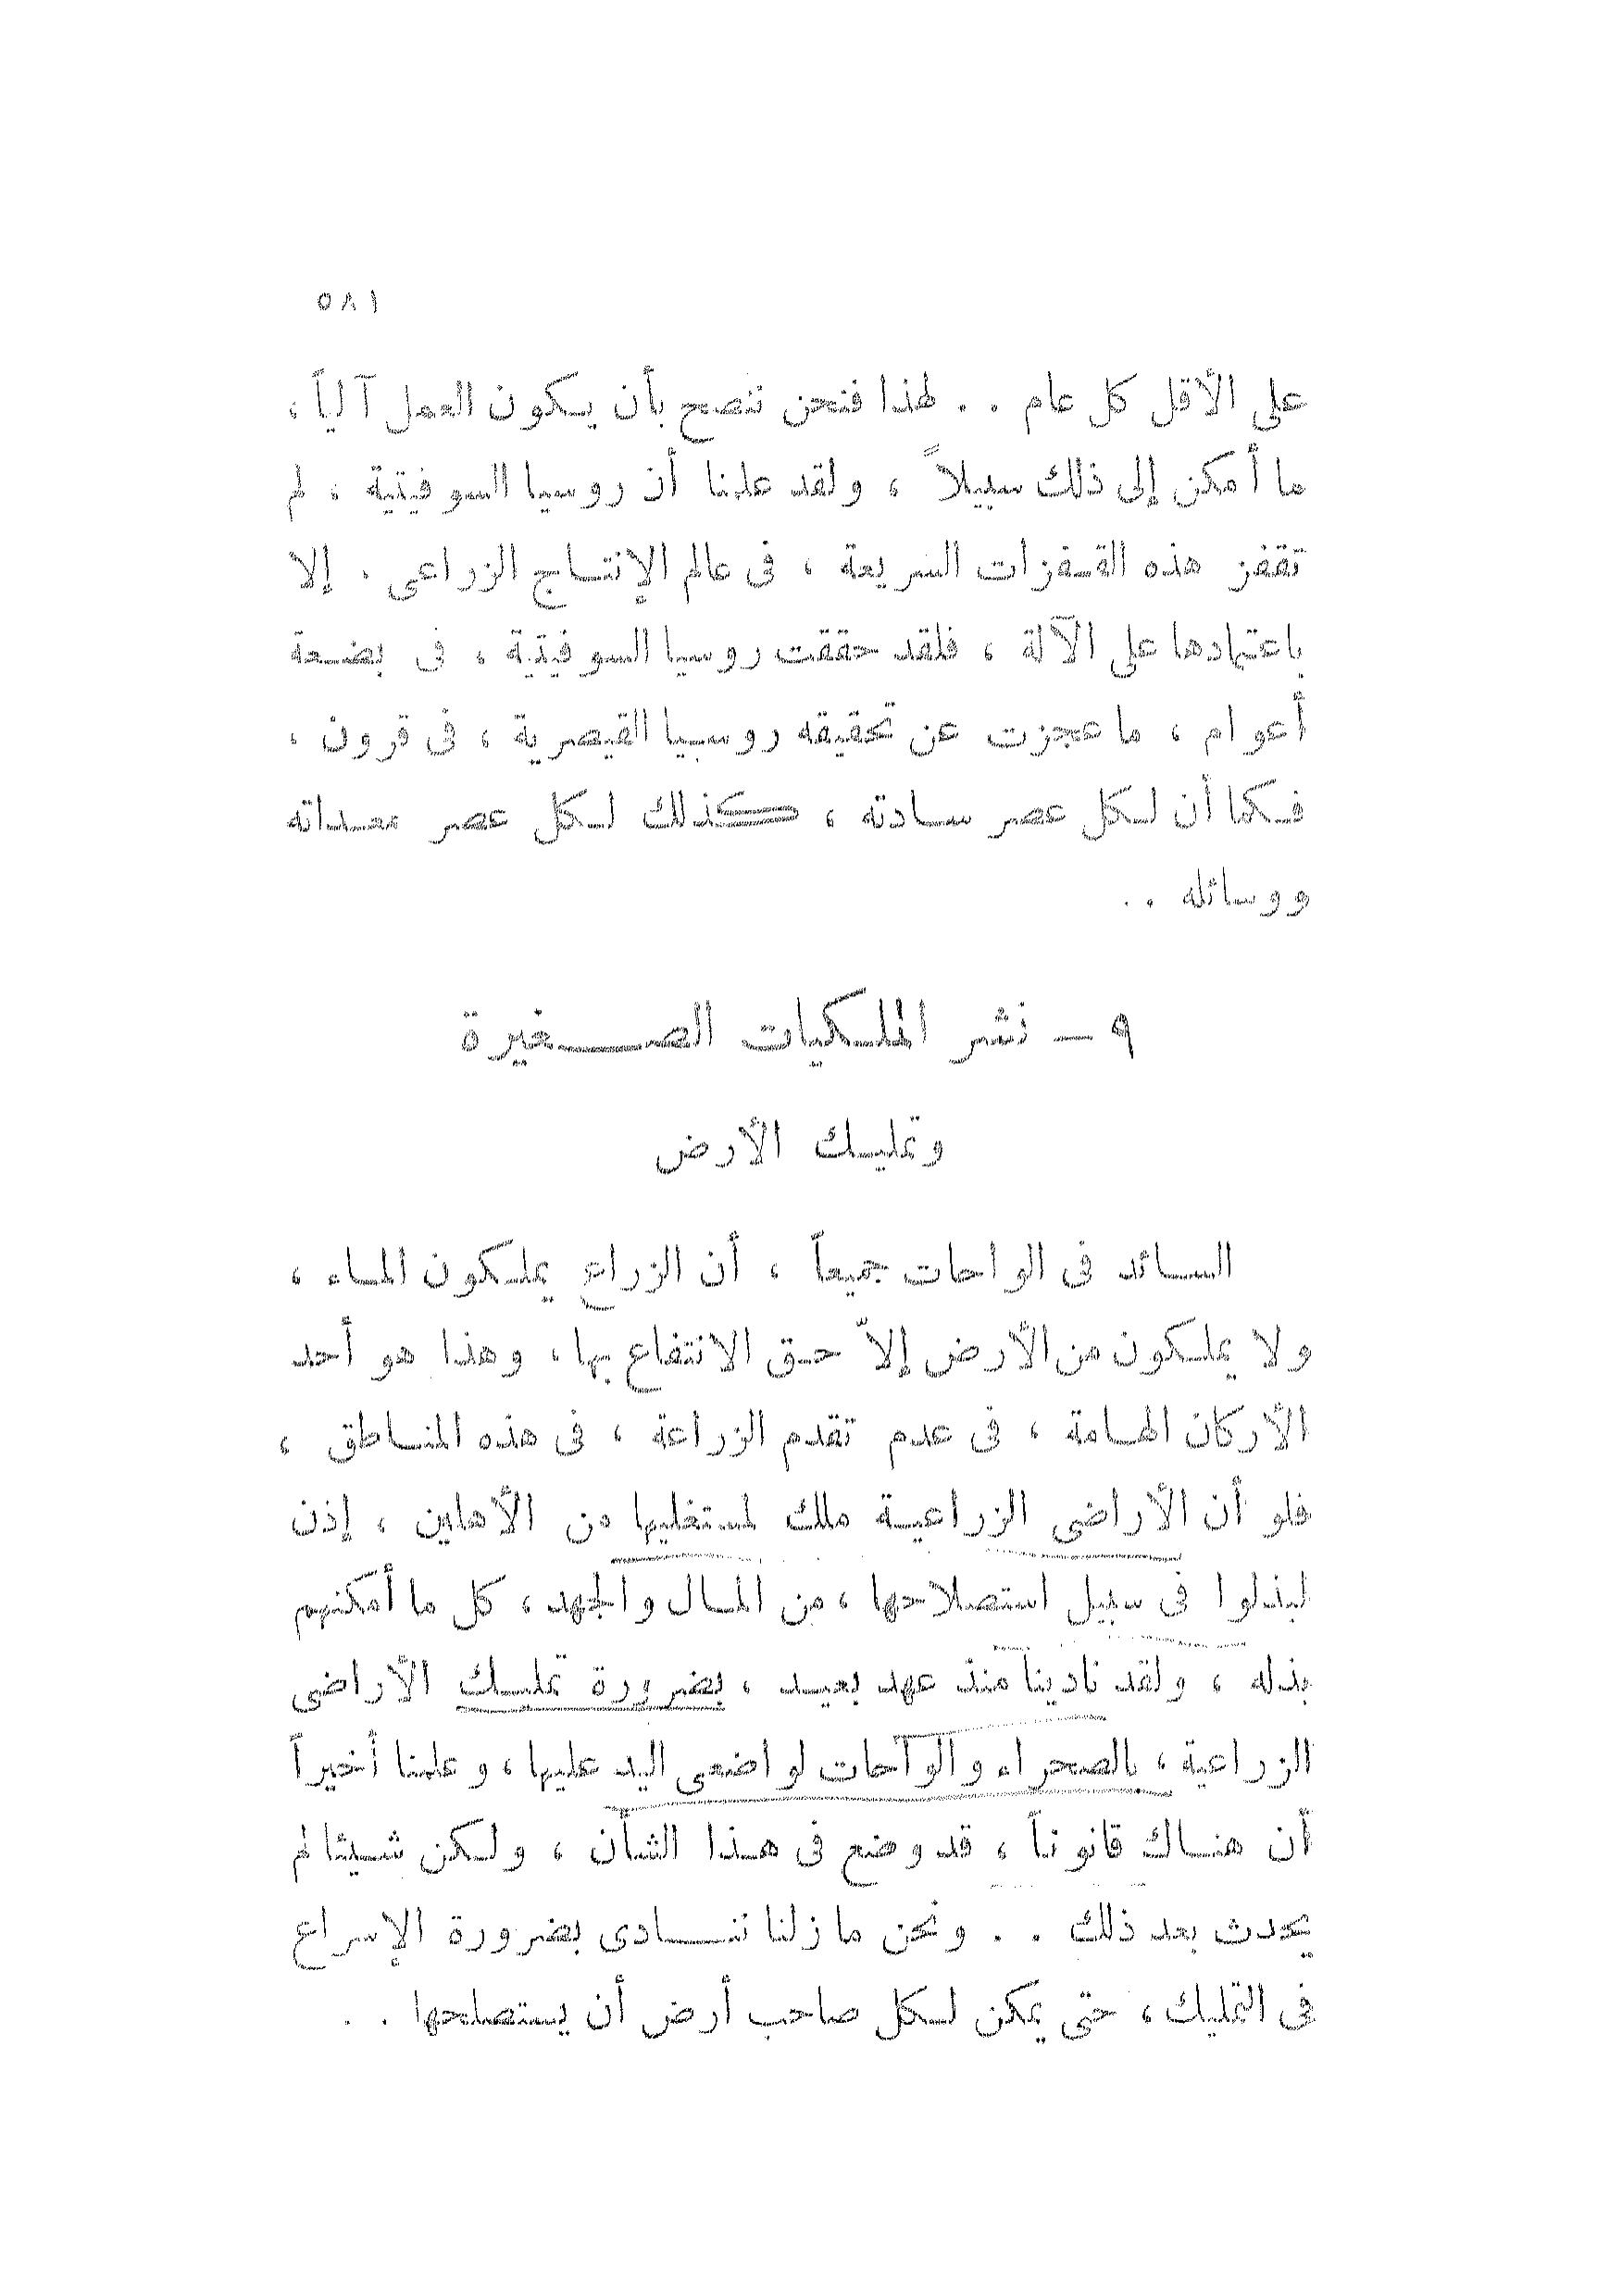 ٥٨١
على الأقل كل عام . . لهذا فنحن ننصح بأن يكون العمل آلياً ،
ما أمكن إلى ذلك سبيلاً ، ولقد علمنا أن روسيا السوفيتية ، لم
تقفز هذه القفزات السريعة ، فى عالم الإنتاج الزراعى . إلا
باعتمادها على الآلة ، فلقد حققت روسيا السوفيتية ، فى بضعة
أعوام ، ما عجزت عن تحقيقه روسيا القيصرية ، فى قرون ،
فكما أن لكل عصر سادته ، كذلك لكل عصر معداته
ووسائله . .
٩ — نشر الملكيات الصغيرة
وتمليك الأرض
السائد فى الواحات جميعاً ، أن الزراع يملكون الماء ،
ولا يملكون من الأرض إلاّ حق الانتفاع بها ، وهذا هو أحد
الأركان الهامة ، فى عدم تقدم الزراعة ، فى هذه المناطق ،
فلو أن الأراضى الزراعية ملك لمستغليها من الأهلين ، إذن
لبذلوا فى سبيل استصلاحها ، من المال والجهد ، كل ما أمكنهم
بذله ، ولقد نادينا منذ عهد بعيد ، بضرورة تمليك الأراضى
الزراعية ، بالصحراء والواحات لواضعى اليد عليها ، وعلمنا أخيراً
أن هناك قانوناً ، قد وضع فى هذا الشأن ، ولكن شيئا لم
يحدث بعد ذلك . . ونحن ما زلنا ننادى بضرورة الإسراع
فى التمليك ، حتى يمكن لكل صاحب أرض أن يستصلحها . .